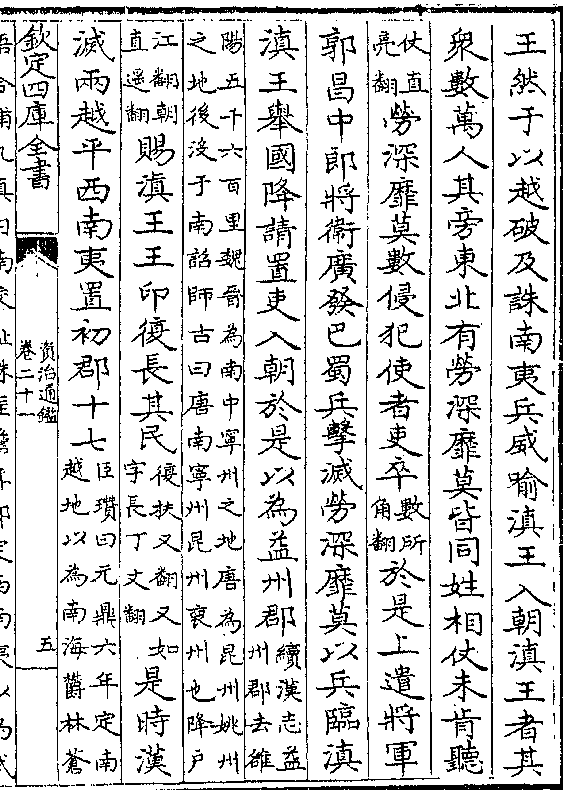 王然于以越破及誅南夷兵威喻滇王入朝滇王者其
衆數萬人其旁東北有勞深靡莫皆同姓相仗未肯聽
仗直亮翻勞深靡莫數侵犯使者吏卒數所角翻於是上遣將軍
郭昌中郎將衛廣發巴蜀兵擊滅勞深靡莫以兵臨滇
滇王舉國降請置吏入朝於是以為益州郡續漢志益州郡去雒
陽五千六百里魏晉為南中寧州之地唐為昆州姚州
之地後沒于南詔師古曰唐南寧州昆州裒州也降戶
江翻朝直遙翻賜滇王王印復長其民復扶又翻又如字長丁丈翻是時漢
滅兩越平西南夷置初郡十七臣瓚曰元鼎六年定南越地以為南海鬱林蒼
欽定四庫全書
資治通鑑
卷二十一
五